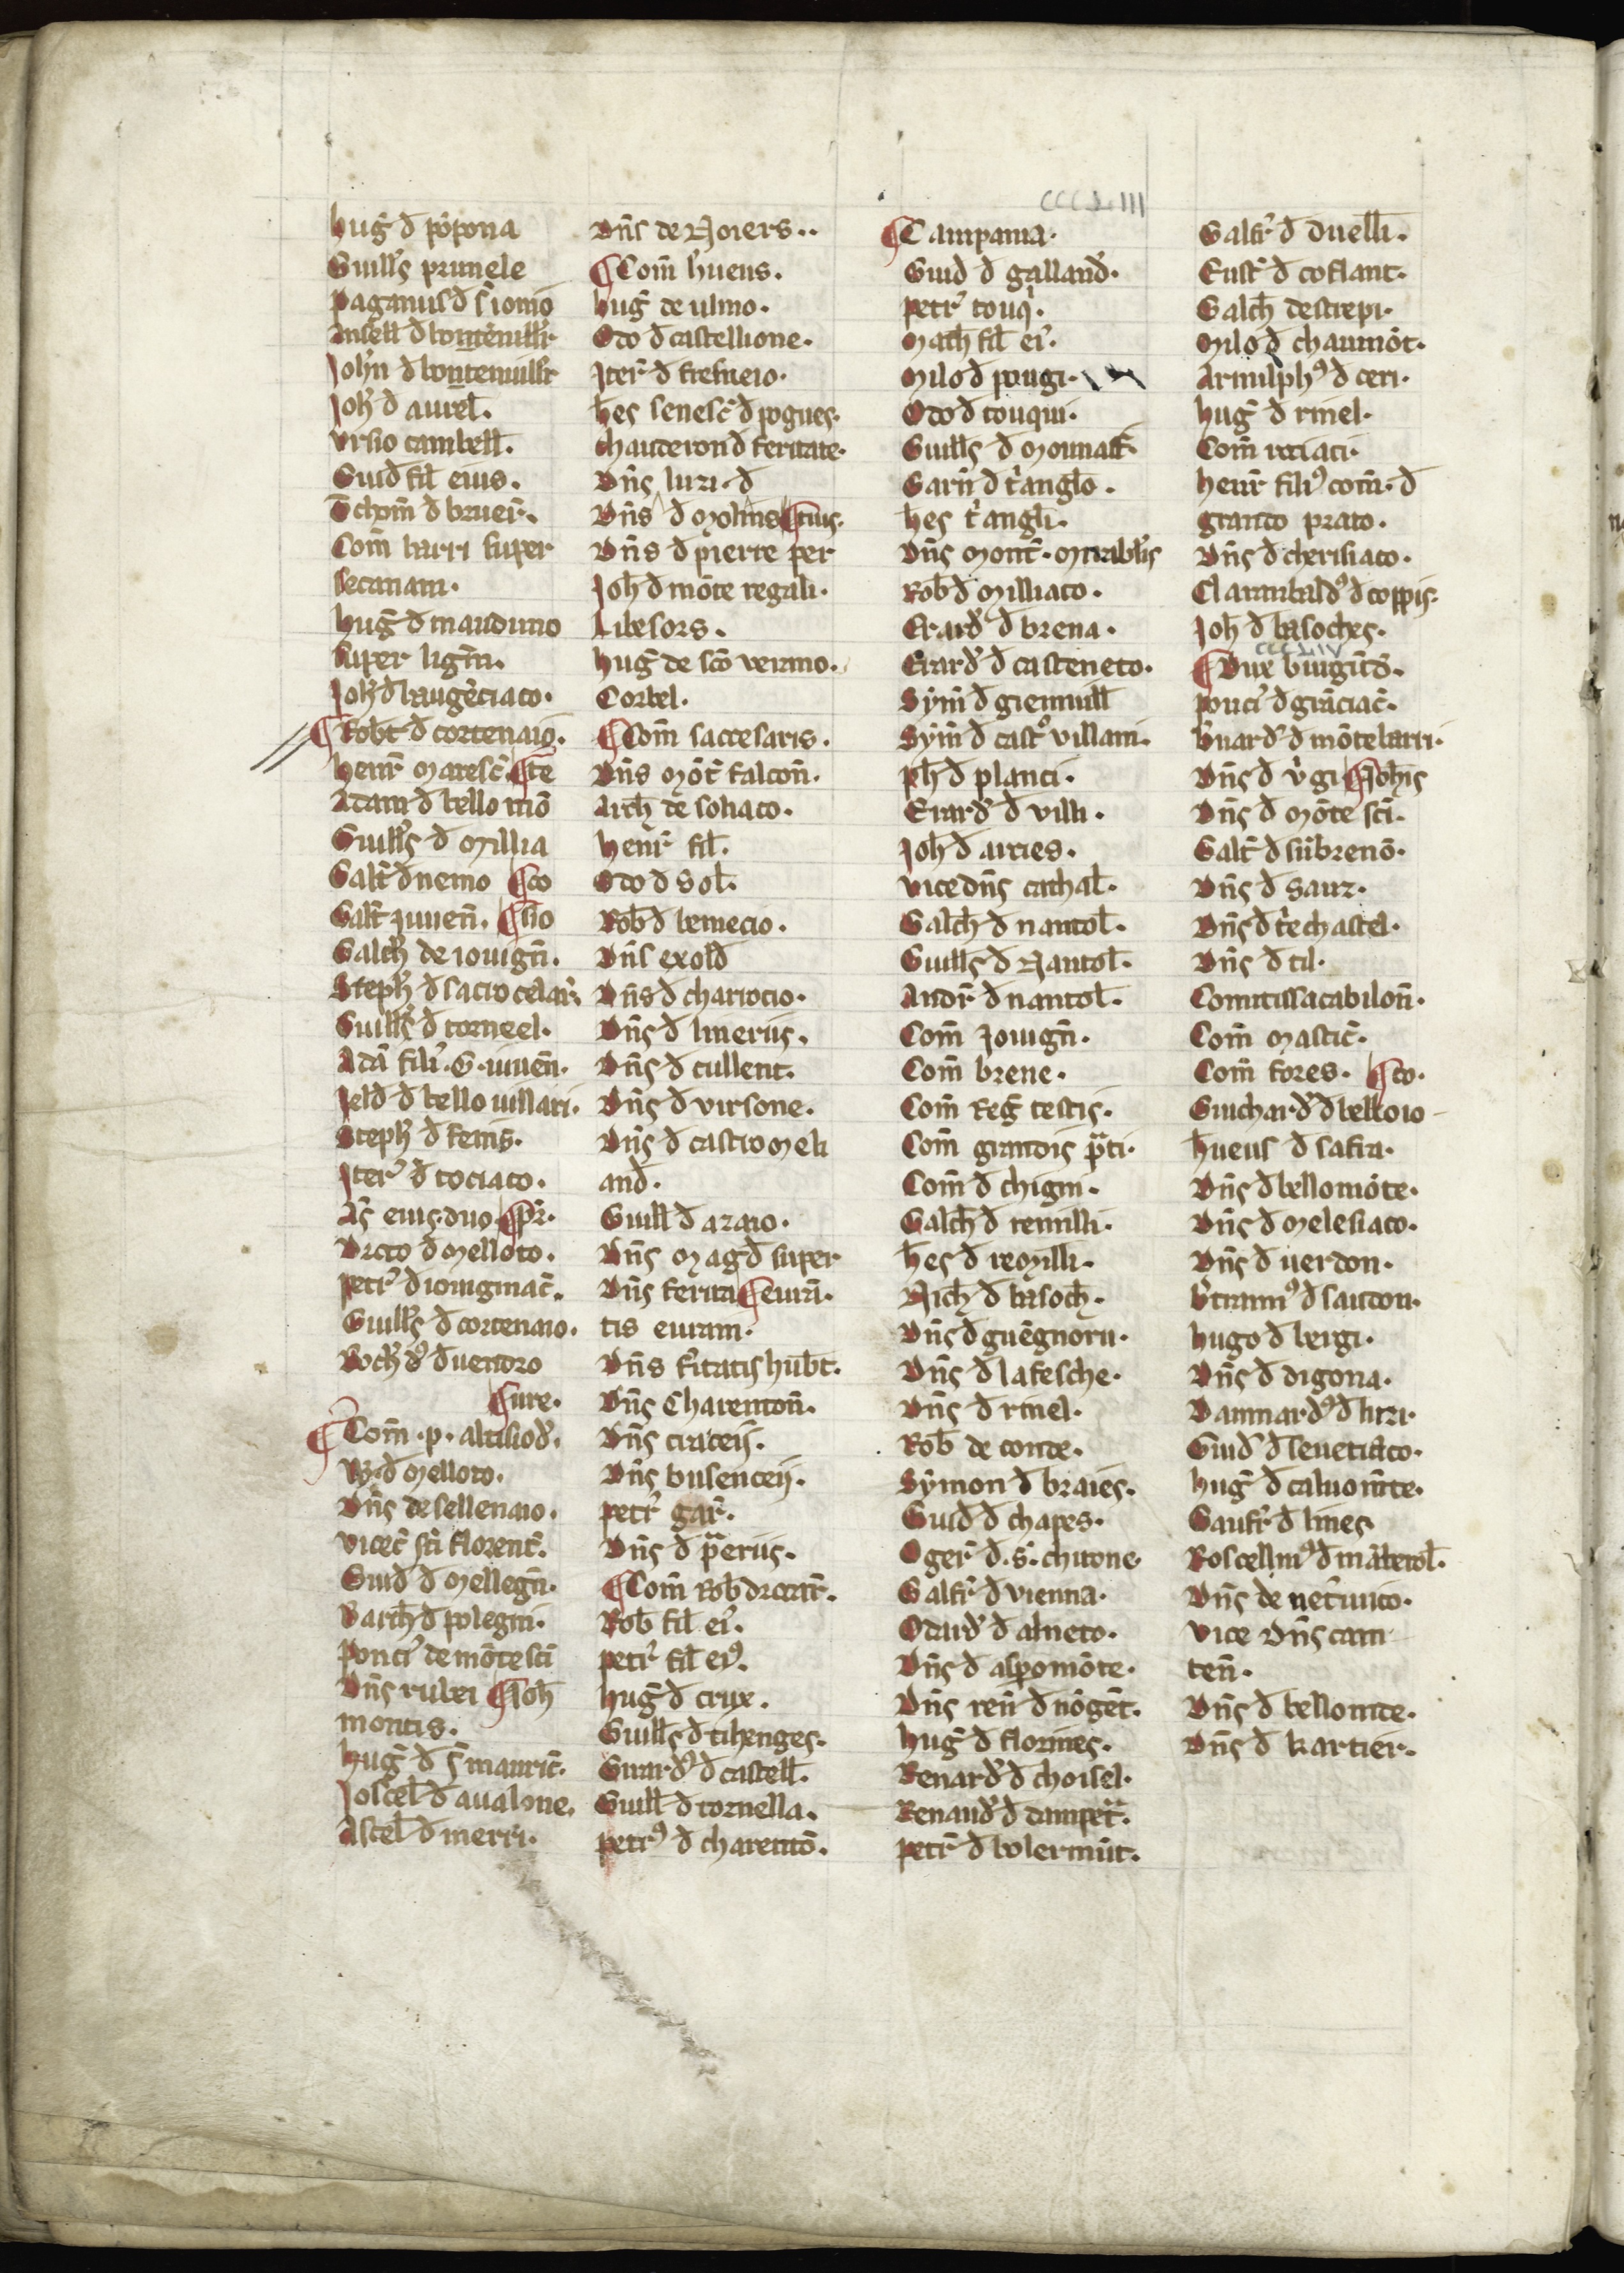 hug̃ đ põpona
Guill's prunele
paganus đ s̃ ionio
Ansell đ bontẽuill'r
Joh'n đ bonteuill'r
Joh' đ aurel̃.
vrsio cambell̃.
Guid fil̃ eius.
Com̃ barri super
secanam.
hug̃ đ mauduno
super ligm̃.
Joh' đ baugẽciaco.
¶ Robt' đ cortenaio.
henr̃ maresc̃. ¶ te
Adam đ bello mõ
Guill's đ millia
Galt̃ đ nemo ¶ co
Galt̃ iuuen̄. ¶ sio
Galch' de iouign̄.
Steph' đ sacro celar̃.
Guill's đ torneel.
Adã fili' .G. iuuen̄.
đ bello uillari.
Steph' đ
Iter' đ tociaco.
eius. duo. ¶ pr̃.
Droco đ melloto.
petr' đ iouigniac̃.
Guill's đ cortenaio.
đ uendro
¶ ure.
¶ Com̃ .p. altisiod'.
đ melloto.
Dñs de sellenaio.
vicec̃ sc̃i florent̃.
Guid đ mellegn̄.
đ polegni.
ponci' de mõte sc̃i
Dñs rubei ¶ Joh
montis.
hug̃ đ s̃ mauric̃.
Joscel̃ đ aualone.
Ascel̃ đ merri.
Dñs de Noiers..
¶ Com̃ h'ueus.
hug̃ de ulmo.
Odo đ castellione.
Iter̃ đ fresneio.
hes senesc̃ đ pogues.
chauderon đ feritate.
Dñs luzi. đ
Dñs đ molins ¶ tius.
Dñs đ pierre per
Joh đ mõte regali.
Libesors.
hug̃ de sc̃o verano.
Corbel.
¶ Com̃ saccesaris.
Dñs mõt̃ falcon̄.
Arch̃ de soliaco.
henr̃ fil̃.
Odo đ Sol̃.
Rob̃ đ
Dñs exold
Dñs đ charrocio.
Dñs đ lineriis.
Dñs đ cullent.
Dñs đ virsone.
Dñs đ castro meli
and.
Guill̃ đ azaio.
Dñs mag̃ đ super
Dñs ferita ¶ eurã.
tis euram.
Dñs f'itatis hub't.
Dñs Charenton̄.
Dñs craceii.
Dñs busenceii.
petr' gar̃.
Dñs đ p̃eriis.
¶ Com̃ Rob̃ drocar̃.
Rob̃ fil̃ ei'.
petr' fil̃ ei'.
hug̃ đ crux.
Guill's đ tihenges.
Girard' đ castell̃.
Guill̃ đ tornella.
petr' đ charentõ.
CCCLIII
¶ Campania.
Guid đ galland'.
petr' touq̃.
Math̃ fil̃ ei'.
Milo đ pougi.
Odo đ touqui.
Guill's đ
Garn̄ đ t'anglo.
hes t'angli.
Dñs mont̃. mirabl'is
Rob̃ đ milliaco.
Erard' đ brena.
Erard' đ casteneto.
Sym̃ đ gienuill̃
Sym̃ đ cast' villani.
ph̃ đ planci.
Erard' đ villi.
Joh̃ đ arcies.
vicedñs cathal̃.
Galch̃ đ nantol̃.
Guill's đ Nantol̃.
Andr̃ đ nantol̃.
Com̃ Jouign̄.
Com̃ brene.
Com̃ Reg̃ testis.
Com̃ grandis p̃ti.
Com̃ đ chigni.
Galch̃ đ remilli.
hes đ remilli.
Nich̃ đ basoch̃.
Dñs đ guẽgnoru.
Dñs đ lafesche.
Dñs đ rinel.
Rob̃ de conde.
Symon đ braies.
Guid đ chapes.
Oger̃ đ .s̃. chirone.
Galfr̃ đ vienna.
Odard' đ alneto.
Dñs đ aspomõte.
Dñs ren̄ đ nõgẽt.
hug̃ đ florines.
Renard' đ choisel.
Renaud' đ dampet̃.
petr̃ đ bolermũt.
Galfr̃ đ duelli.
Eust̃ đ coflant.
Galch̃ destrepi.
Milo đ chaumõt.
Arnulph' đ ceri.
hug̃ đ rinel.
Com̃ reciaci.
henr̃ fili' com̃. đ
grando prato.
Dñs đ cherisiaco.
Claranbald' đ coppis.
Joh̃ đ basoches.
CCCLIV
¶ Dux burgũd'.
ponci' đ grãciac̃.
b'nard' đ mõte barri.
Dñs đ v'gi ¶ Joh̃is
Dñs đ mõte sc̃i.
Galt̃ đ sũbrenõ.
Dñs đ Saux.
Dñs đ t'echastel.
Dñs đ til.
Comitissa cabilon̄.
Com̃ mastic̃.
Com̃ fores. ¶ co.
Guichard' đ belloio
hueus đ safra.
Dñs đ bellomõte.
Dñs đ melesiaco.
Dñs đ uerdon.
b'trann' đ saudon.
hugo đ bergi.
Dñs đ digona.
Dannard' đ luzi.
Guid' đ
hug̃ đ caluomõte.
Gaufr̃ đ lines
Roscellin' đ
Dñs de
vice Dñs cam
ten̄.
Dñs đ bellomte.
Dñs đ kartier.